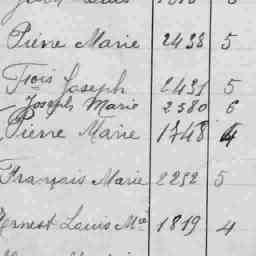 Pierre Marie 2438 5
Fçois Joseph 2431 5
Joseph Marie 2580 6
Pierre Marie 1748 4
Français Marie 2252 5
Ernest Louis Mie 1819 4